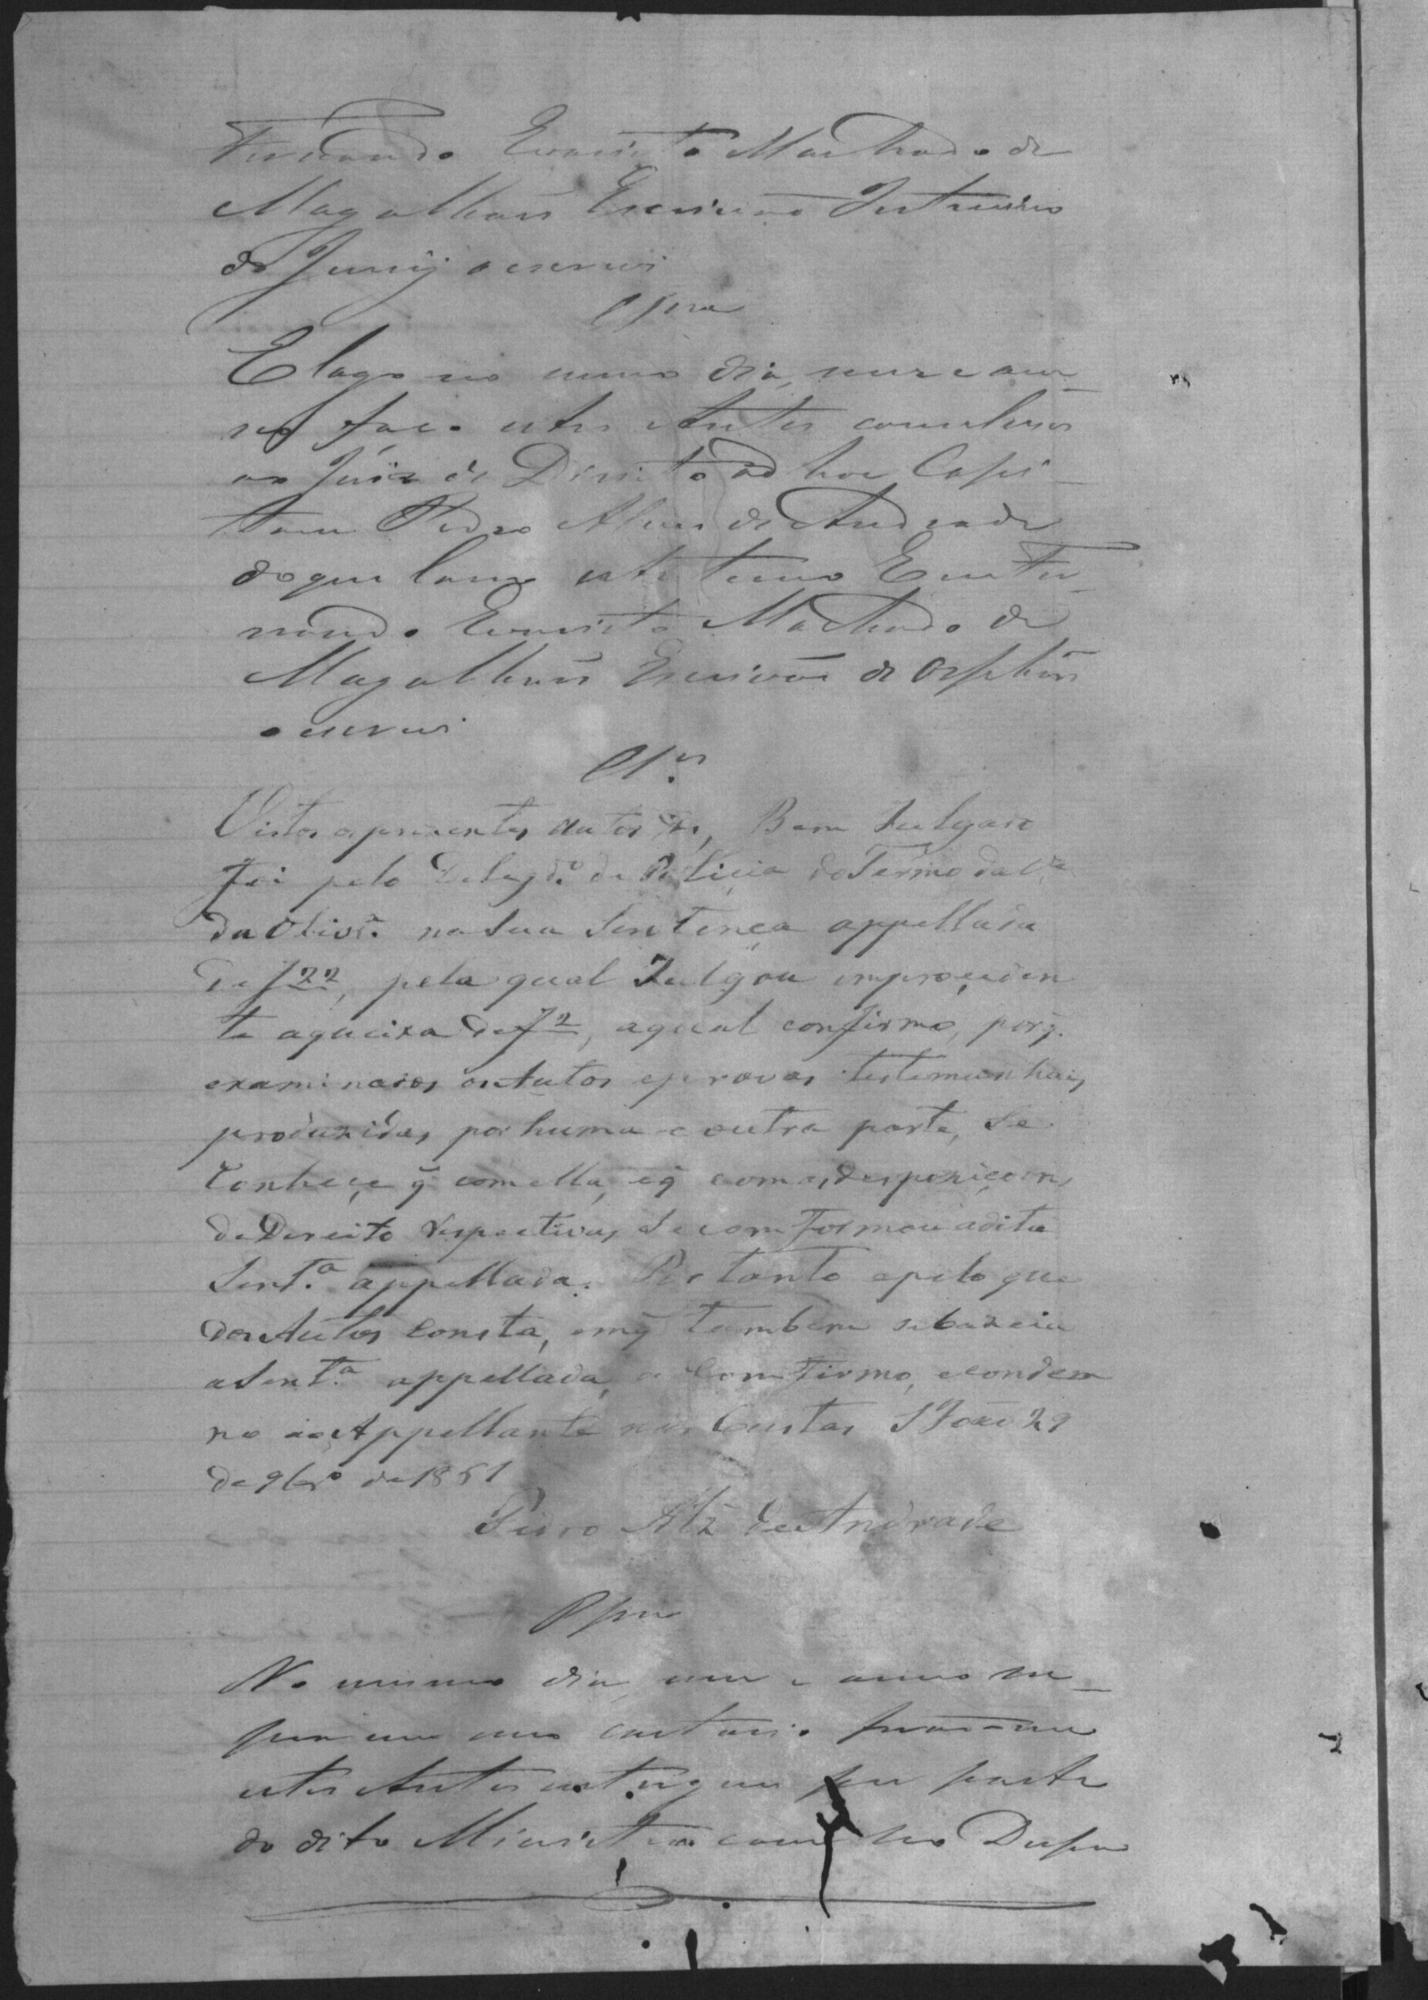 Fernando Evaristo Machado de
Magalhães Escrivão Intrino
do Jury o escrevi
E logo no mesmo dia, mez e anno
faço estes Autos conclusos
ao Juis de Direito ad hoc Capi
tam Pedro Alves de Andrade
do que lavro este termo Eu Fer
nando Evaristo Machado de
Magalhães Escrivão de Orphãos
o escrevi
Cl.os
Vistos os presentes Autos &, Bem Julgado
foi pelo Deleg.do de Policia do Termo da V.a
da Oliv.a na sua Sentença appellada
de f 22, pela qual Julgou improceden
te aqueixa de f 2, aqual confirmo, porq̃
examinados os Autos e provas testemunhais,
produzidas por huma e outra parte, se
conhece q̃ com ella, e q̃ com as desposiçoens,
de Dereito respectivas, se comformou adita
Sent.a appellada. Portanto e pelo que
dos Autos consta, em q̃ tambem se bazeia
a Sent.a appellada, a Comfirmo, e condem
no ao Appellante nas Custas S João 29
de 9br.o de 1851
Pedro Alz de Andrade
No mesmo dia, mez e anno su
pra em meu cartorio
estes Autos por parte
do dito Ministro com o seo Despa